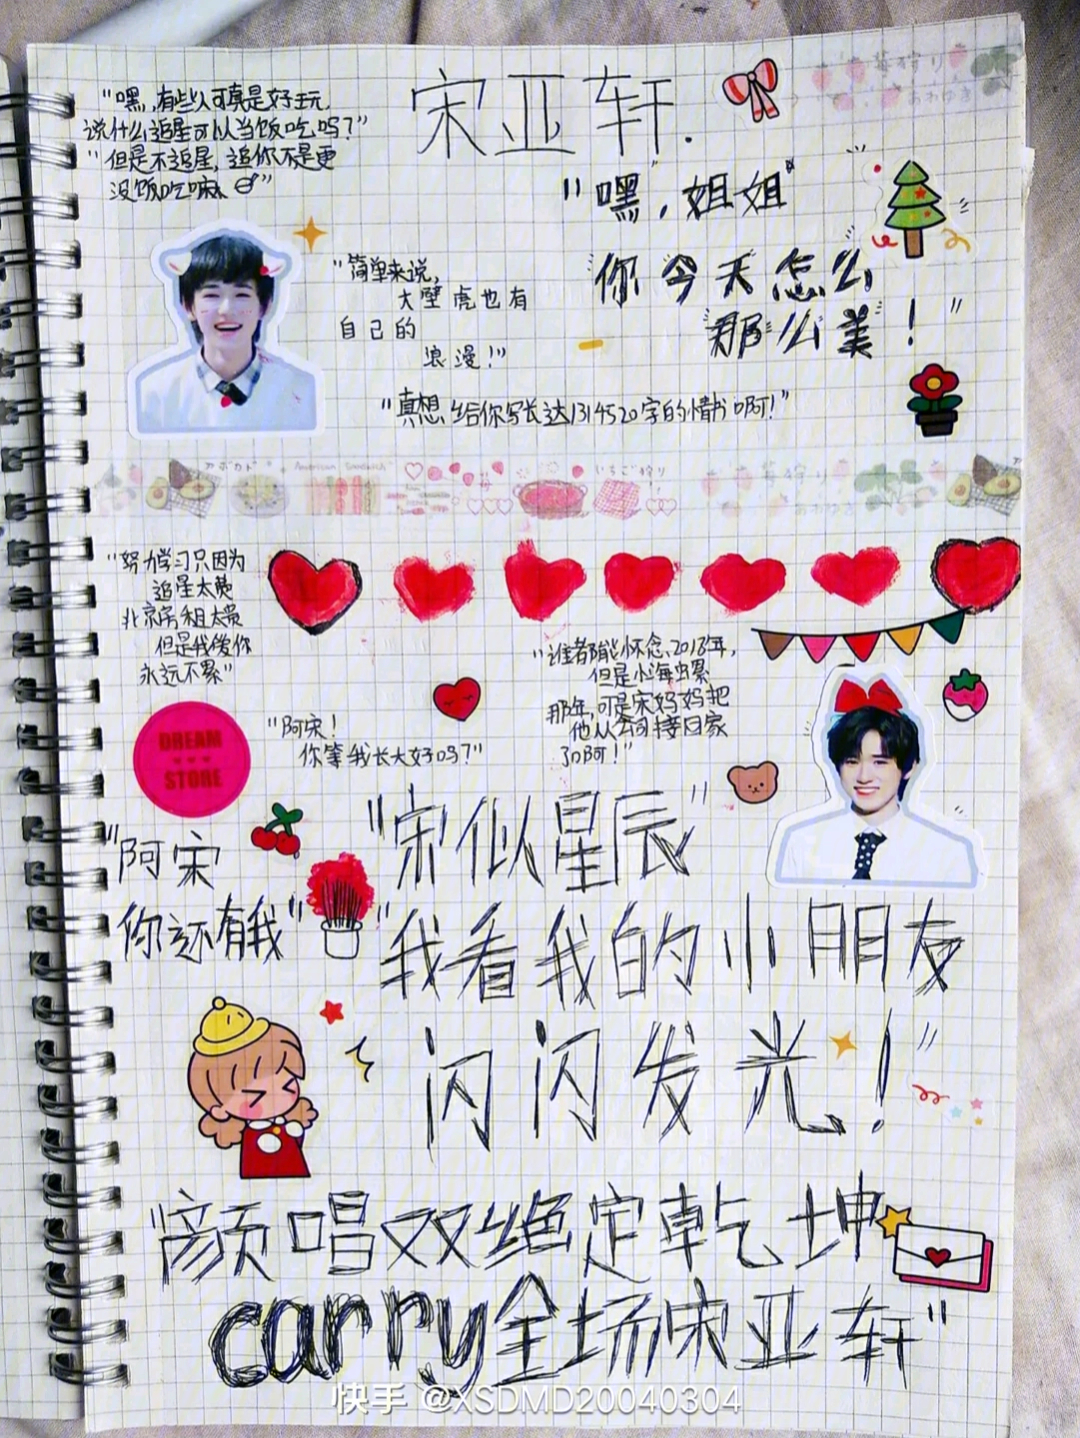 宋亚轩.
"嘿,有些人可真是好玩,
说什么追星可以当饭吃吗?"
"但是不追星,追你不是更
没饭吃嘛"
"嘿,姐姐"
你今天怎么
那么美!"
"简单来说,
大壁虎也有
自己的
浪漫!"
"真想给你写长达1314520字的情书啊!"
アボカド
American Sandwich
いちご狩り
"努力学习只因为
追星太费
北京房租太贵
但是我爱你
永远不累"
"谁都能怀念2018年,
但是小海虫累
那年,可是宋妈妈把
他从公司接回家
了啊!"
DREAM
STORE
"阿宋!
你等我长大好吗?"
"宋似星辰"
"阿宋
你还有我"
"我看我的小朋友
闪闪发光!"
"颜唱双绝定乾坤
carry全场宋亚轩"
快手 @XSDMD20040304